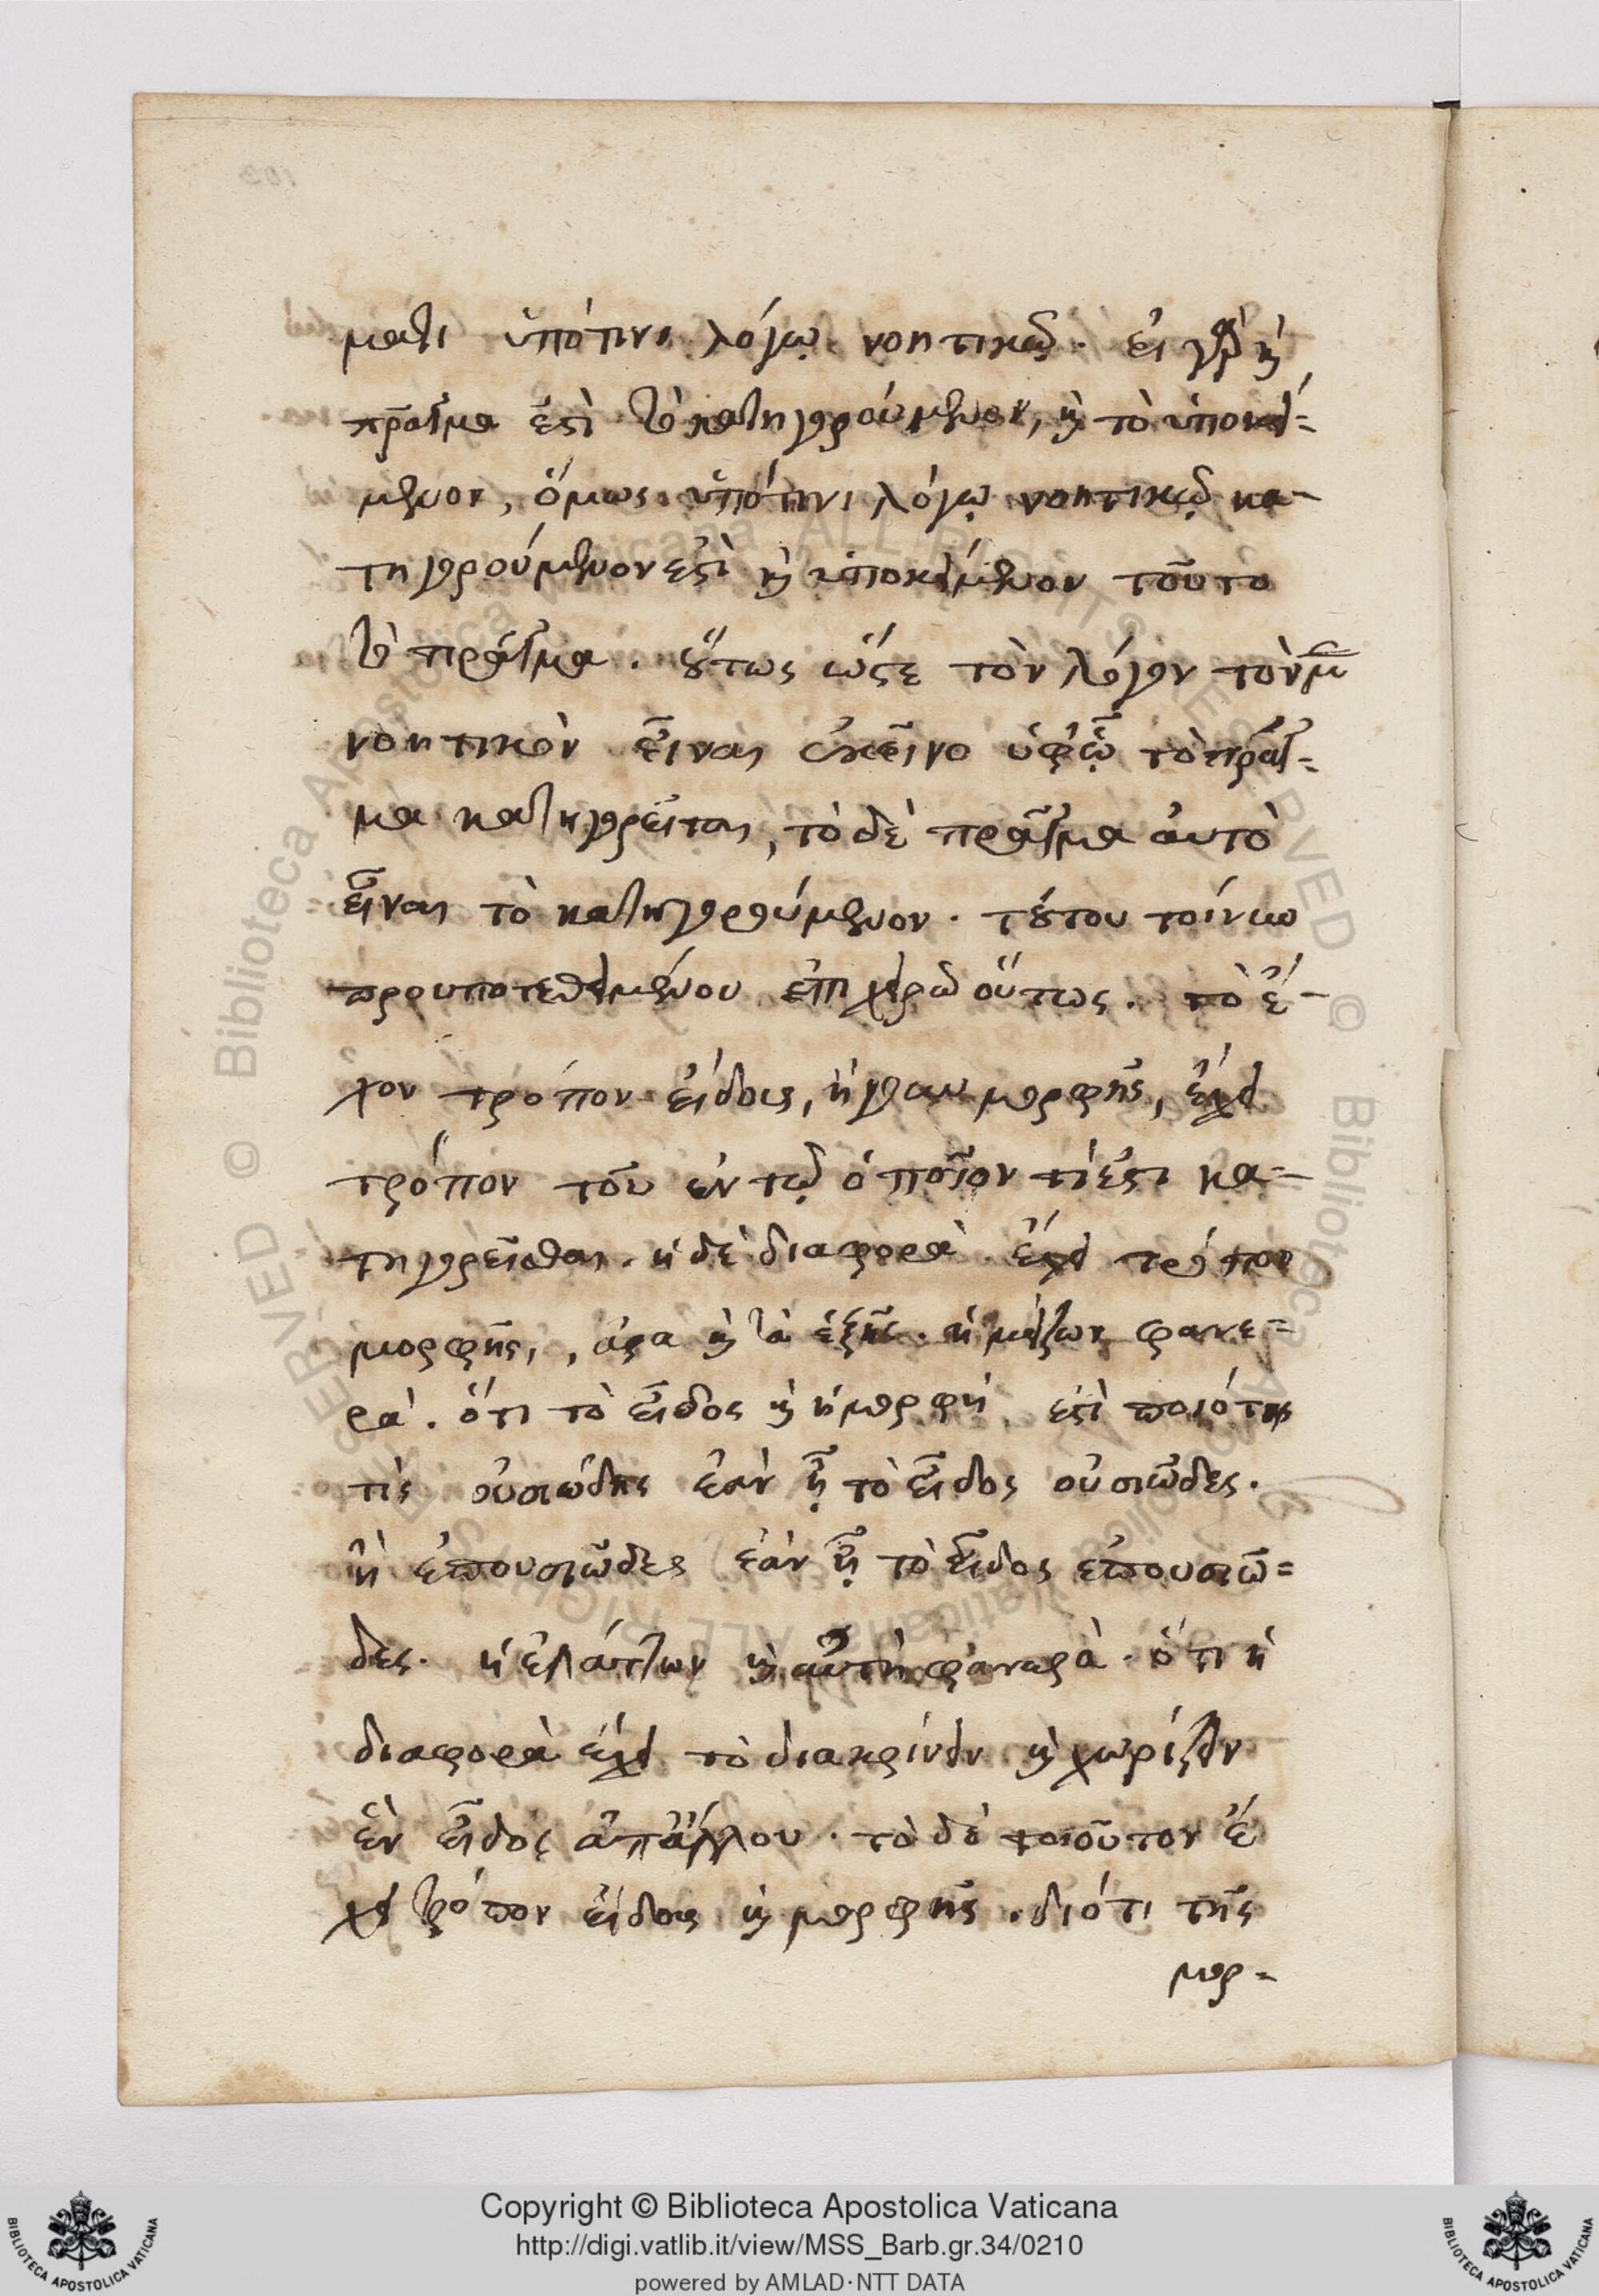 ματι ὑπότινι λόγῳ νοητικῷ. εἰ γὰρ καὶ
πρᾶγμα ἐστὶ τὸ κατηγορούμενον, καὶ τὸ ὑποκεί=
μενον, ὅμως ὑπότινι λόγῳ νοητικῷ κα-
τηγορούμενον ἐστὶ καὶ ὑποκείμενον τοῦτο
τὸ πρᾶγμα. οὕτως ὥστε τὸν λόγον τὸν μ
νοητικὸν εἶναι ἐκεῖνο ὑφ' ᾧ τὸ πρᾶγ=
μα κατηγορεῖται, τὸ δὲ πρᾶγμα αὐτὸ
εἶναι τὸ κατηγορούμενον. τούτου τοίνυν
προυποτεθειμένου ἐπιχειρῶ οὕτως. τὸ ἔ-
χον τρόπον εἴδους, ἤγουν μορφῆς, ἔχει
τρόπον τοῦ ἐν τῷ ὁποῖον τί ἐστι κα-
τηγορεῖσθαι. ἡ δὲ διαφορὰ ἔχει τρόπον
μορφῆς,, ἄρα καὶ τὰ ἑξῆς. ἡ μείζων φανε=
ρά. ὅτι τὸ εἶδος καὶ ἡ μορφή ἐστὶ ποιότης
τὶς οὐσιώδης ἐὰν ᾖ τὸ εἶδος οὐσιῶδες.
ἢ ἐπουσιῶδες ἐὰν ᾖ τὸ εἶδος ἐπουσιῶ=
δες. ἡ ἐλάττων καὶ αὐτὴ φανερὰ. ὅτι ἡ
διαφορὰ ἔχει τὸ διακρίνειν καὶ χωρίζειν
ἓν εἶδος ἀπάλλου. τὸ δὲ τοιοῦτον ἔ
χει τρόπον εἴδους καὶ μορφῆς. διότι τῆς
μορ=
Copyright © Biblioteca Apostolica Vaticana
http://digi.vatlib.it/view/MSS_Barb.gr.34/0210
powered by AMLAD·NTT DATA